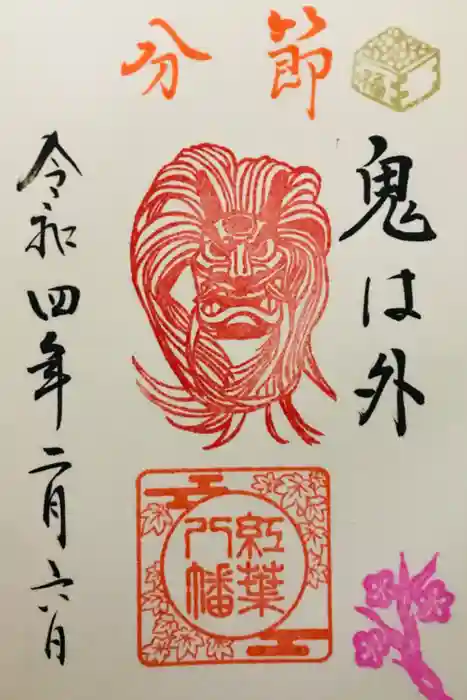 節分
福
鬼は外
紅葉
八幡
令和四年二月六日